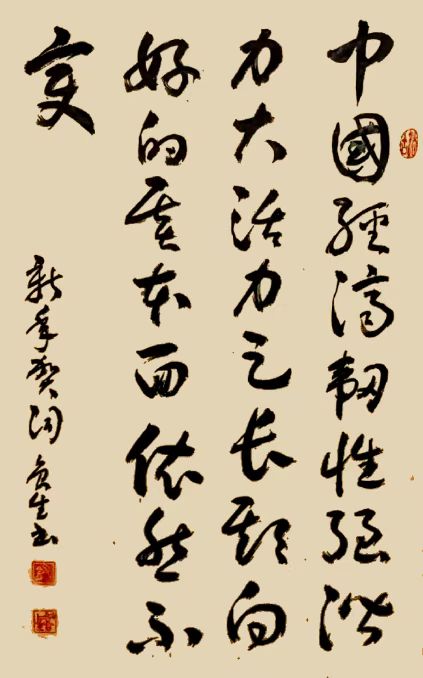 中國經濟韌性强潜
力大活力足长期向
好的基本面依然不
变
新年贺词 生书